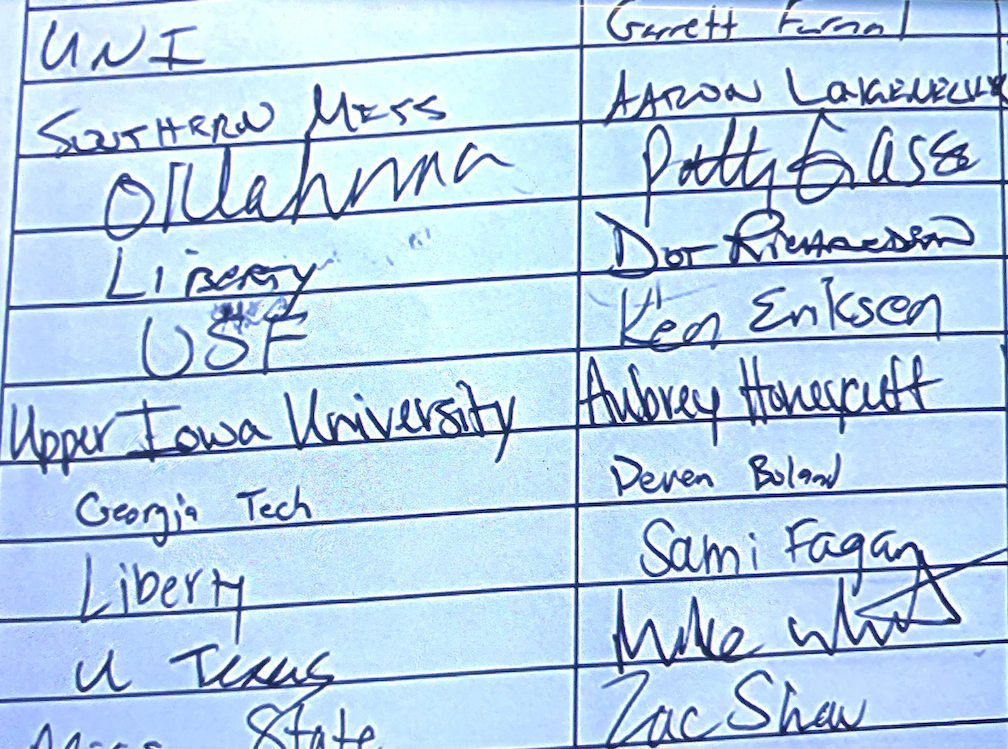 UNI Garrett
SOUTHERN MISS AARON
Oklahoma Patty Gasso
LIBERTY DOT RICHARDSON
USF Ken Eriksen
Upper Iowa University Aubrey Honeycutt
Georgia Tech Deven Boland
Liberty Sami Fagan
U Texas Mike White
Miss State Zac Shaw